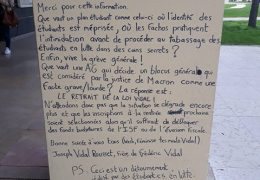 Merci pour cette information.
Que vaut un plan étudiant comme celui-ci où l'identité des
étudiants est méprisée, où les fachos pratiquent
l'intimidation avant de procéder au tabassage des
étudiants en lutte dans des cuirs secrets ?
Enfin, vive la grève générale !
Que vaut une AG qui décide un blocus général qui
est considéré par la justice de Macron comme une
Faute grave/lourde ? La réponse est :
LE RETRAIT DE LA LOI VIDAL !
N'attendons donc pas que la situation se dégrade encore
plus et que les inscriptions à la rentrée prochaine
soient sélectionnées alors qu'il suffirait de débloquer
des fonds budgétaires de l'ISF ou de l'évasion fiscale.
Bonne soirée à vous tous
Joseph Vidal Rousset, Frère de Frédéric Vidal
PS : Ceci est un détournement
par des étudiant.e.s en lutte.